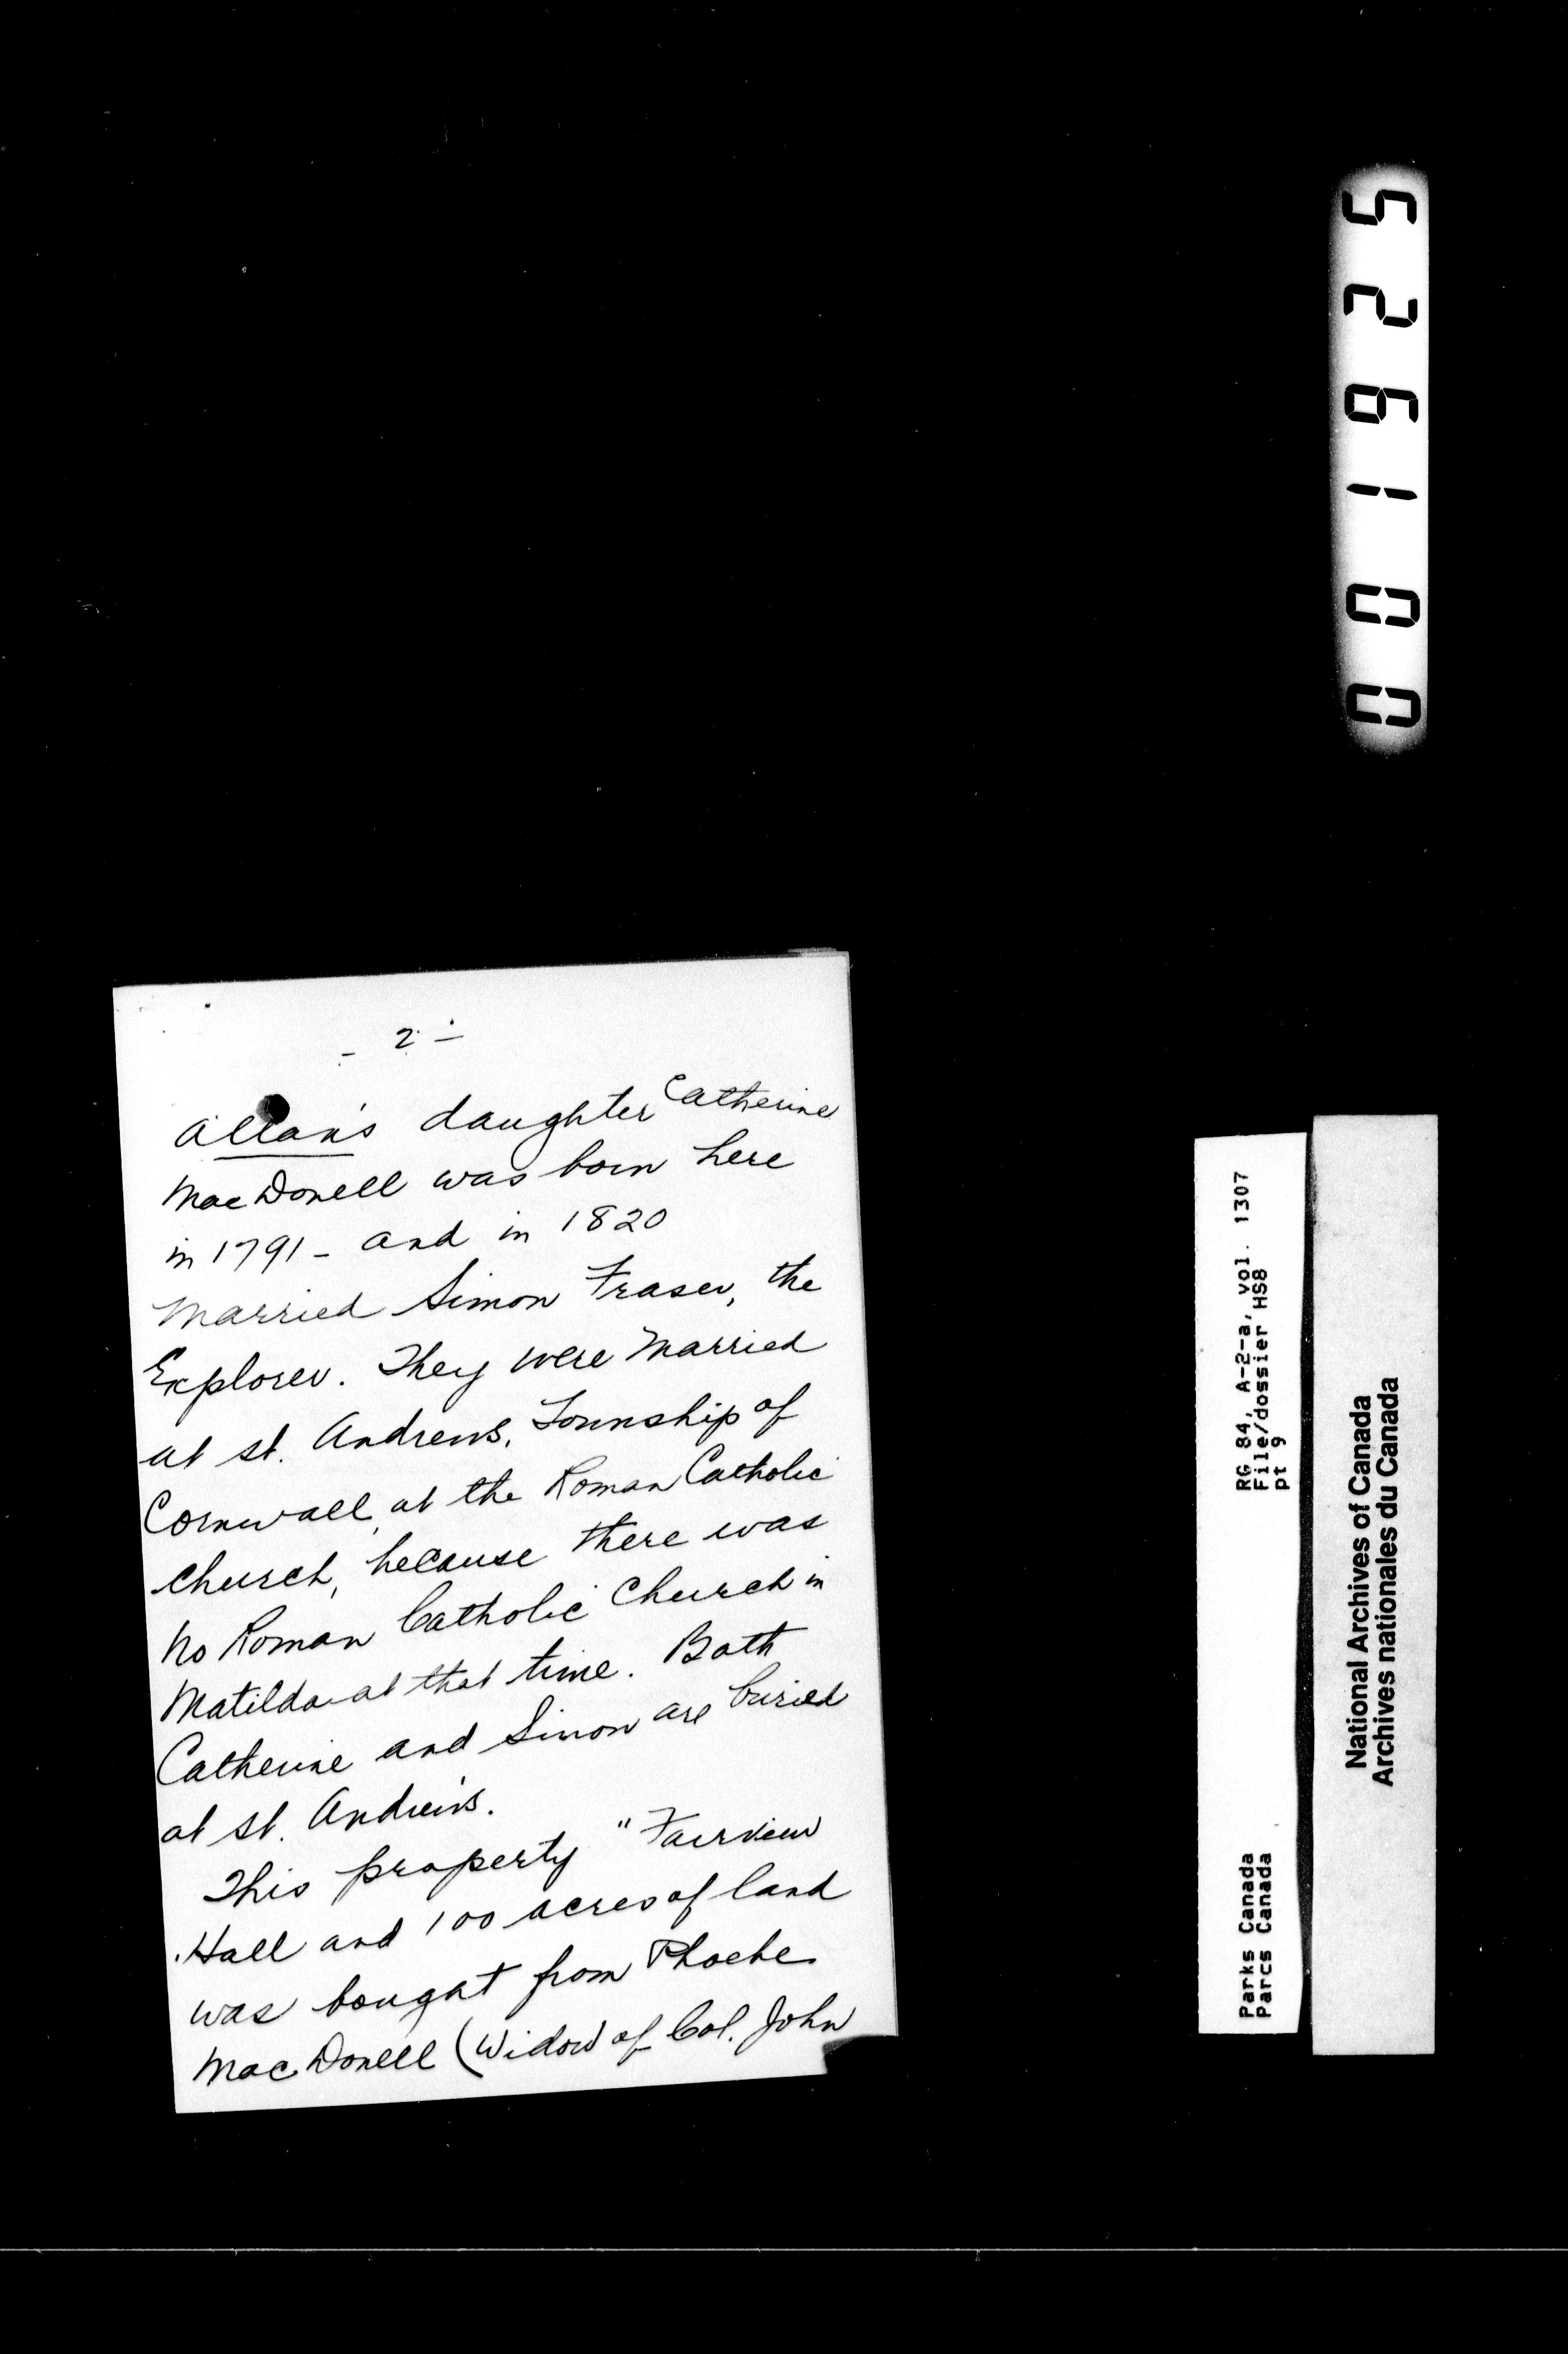 - 2 -
Allan's daughter Catherine
MacDonell was born here
in 1791 - and in 1820
Married Simon Fraser, the
Explorer. They were Married
at St. Andrews, Township of
Cornwall, at the Roman Catholic
Church, because there was
No Roman Catholic Church in
Matilda at that time. Both
Catherine and Simon are buried
at St. Andrew's.
This property "Fairview
Hall and 100 acres of land
was bought from Phoebe
MacDonell (Widow of Col. John
001625
RG 84, A-2-a, vol. 1307
File/dossier HS8
pt 9
Parks Canada
Parcs Canada
National Archives of Canada
Archives nationales du Canada